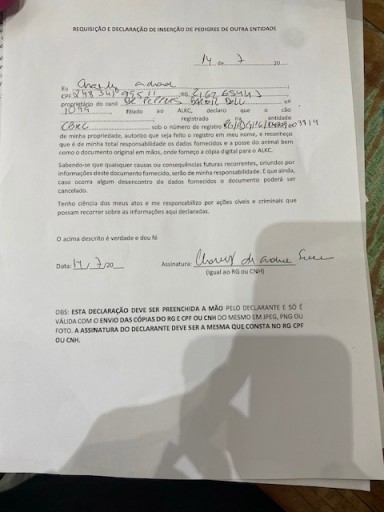 REQUISIÇÃO E DECLARAÇÃO DE INSERÇÃO DE PEDIGREES DE OUTRA ENTIDADE
14 de 7 20
Eu
CPF RG
proprietário do canil nº
1099 filiado ao ALKC, declaro que o cão
registrado na entidade
CBKC sob o número de registro
de minha propriedade, autorizo que seja feito o registro em meu nome, e reconheço
que é de minha total responsabilidade os dados fornecidos e a posse do animal bem
como o documento original em mãos, onde forneço a cópia digital para o ALKC.
Sabendo-se que quaisquer causas ou consequências futuras recorrentes, oriundos por
informações deste documento fornecido, serão de minha responsabilidade. E que ainda,
caso ocorra algum desencontro de dados fornecidos o documento poderá ser
cancelado.
Tenho ciência dos meus atos e me responsabilizo por ações cíveis e criminais que
possam recorrer as informações aqui declaradas.
O acima descrito é verdade e dou fé
Data: 14 / 7 / 20 Assinatura:
(igual ao RG ou CNH)
OBS: ESTA DECLARAÇÃO DEVE SER PREENCHIDA A MÃO PELO DECLARANTE E SÓ É
VÁLIDA COM O ENVIO DAS CÓPIAS DO RG E CPF OU CNH DO MESMO EM JPEG, PNG OU
FOTO. A ASSINATURA DO DECLARANTE DEVE SER A MESMA QUE CONSTA NO RG CPF
OU CNH.